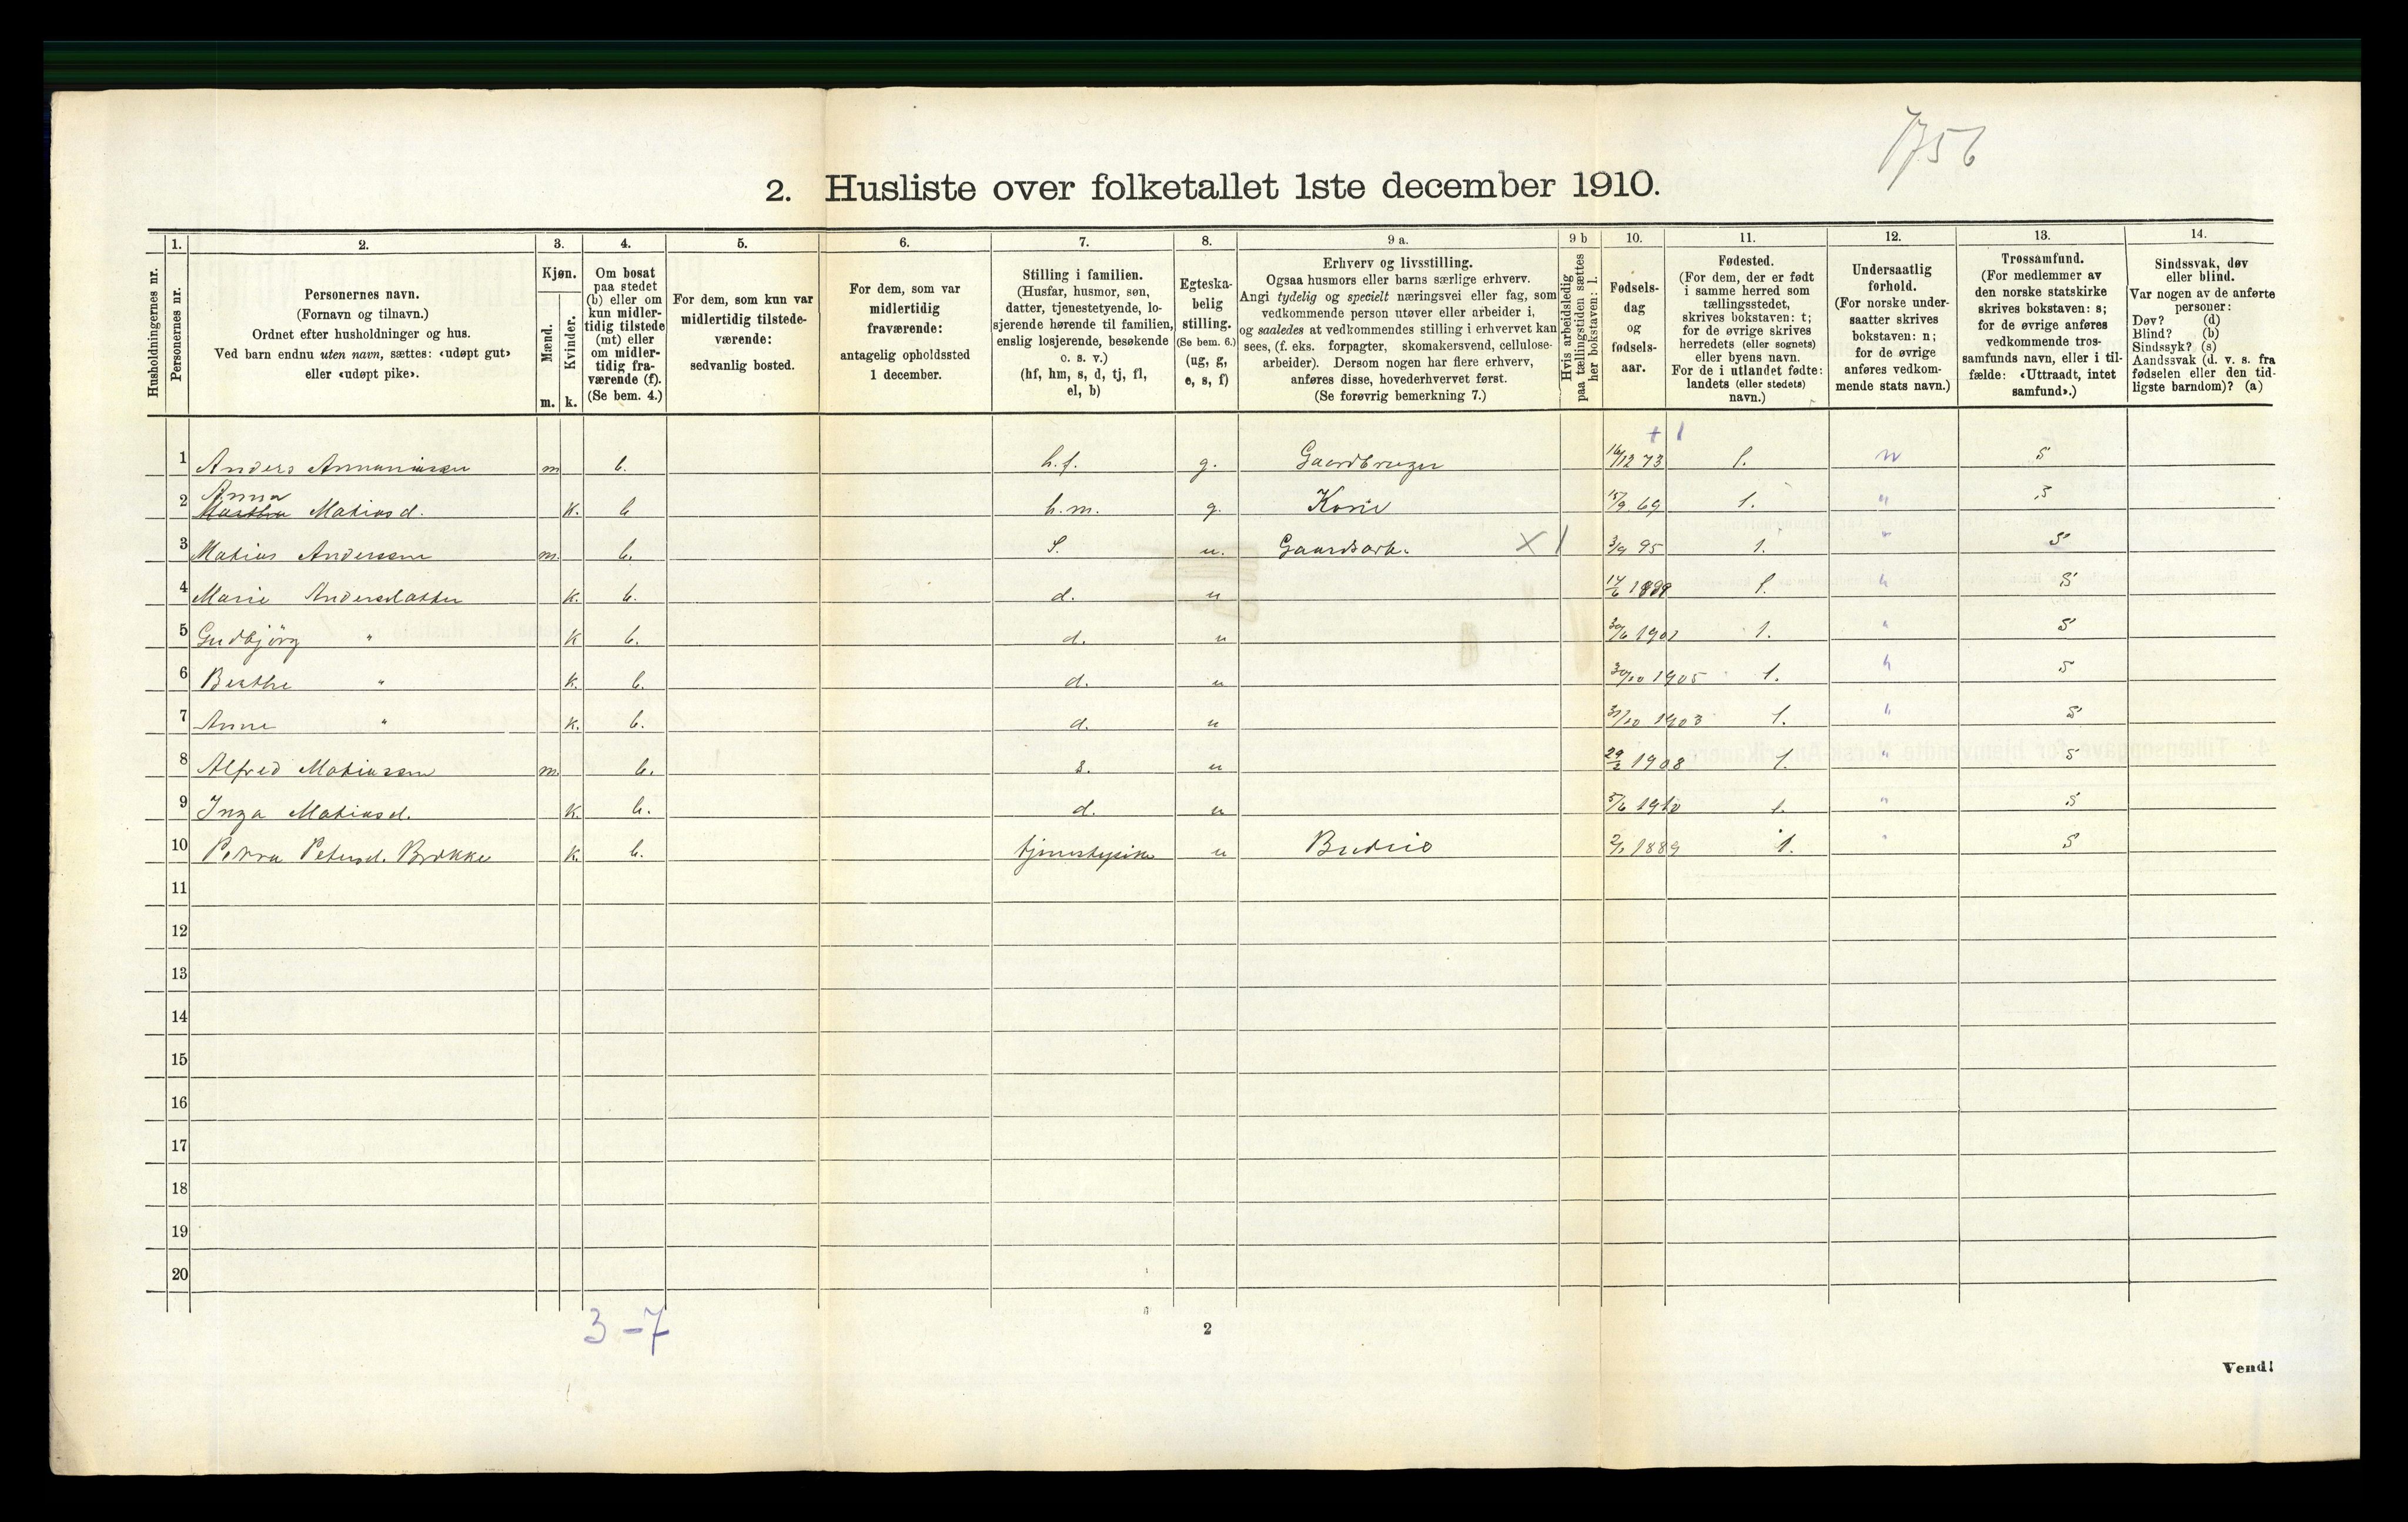 1756
2. Husliste over folketallet 1ste december 1910.
Husholdningernes nr.
1. Personernes nr.
2. Personernes navn. (Fornavn og tilnavn.) Ordnet efter husholdninger og hus. Ved barn endnu uten navn, sættes: «udøpt gut» eller «udøpt pike».
3. Kjøn. Mænd. m. Kvinder. k.
4. Om bosat paa stedet (b) eller om kun midlertidig tilstede (mt) eller om midlertidig fraværende (f). (Se bem. 4.)
5. For dem, som kun var midlertidig tilstedeværende: sedvanlig bosted.
6. For dem, som var midlertidig fraværende: antagelig opholdssted 1 december.
7. Stilling i familien. (Husfar, husmor, søn, datter, tjenestetyende, losjerende hørende til familien, enslig losjerende, besøkende o. s. v.) (hf, hm, s, d, tj, fl, el, b)
8. Egteskabelig stilling. (Se bem. 6.) (ug, g, e, s, f)
9 a. Erhverv og livsstilling. Ogsaa husmors eller barns særlige erhverv. Angi tydelig og specielt næringsvei eller fag, som vedkommende person utøver eller arbeider i, og saaledes at vedkommendes stilling i erhvervet kan sees, (f. eks. forpagter, skomakersvend, cellulosearbeider). Dersom nogen har flere erhverv, anføres disse, hovederhvervet først. (Se forøvrig bemerkning 7.)
9 b Hvis arbeidsledig paa tællingstiden sættes her bokstaven: l.
10. Fødselsdag og fødselsaar.
11. Fødested. (For dem, der er født i samme herred som tællingsstedet, skrives bokstaven: t; for de øvrige skrives herredets (eller sognets) eller byens navn. For de i utlandet fødte: landets (eller stedets) navn.)
12. Undersaatlig forhold. (For norske undersaatter skrives bokstaven: n; for de øvrige anføres vedkommende stats navn.)
13. Trossamfund. (For medlemmer av den norske statskirke skrives bokstaven: s; for de øvrige anføres vedkommende trossamfunds navn, eller i tilfælde: «Uttraadt, intet samfund».)
14. Sindssvak, døv eller blind. Var nogen av de anførte personer: Døv? (d) Blind? (b) Sindssyk? (s) Aandssvak (d. v. s. fra fødselen eller den tidligste barndom)? (a)
1 Anders Ananiassen m b. h.f. g. Gaardbruger 16/12 73 t. n s
2 Anna Martha Matiasd. k. b h.m. g. Kone 15/9 69 t. " s
3 Matias Anderssen m. b. s. u. Gaardsarb. X 3/9 95 t. " s
4 Marie Andersdatter k. b. d. u 14/6 1899 t. " s
5 Gudbjörg " k b. d. u 30/6 1901 t. " s
6 Berthe " k. b. d. u 30/10 1905 t. " s
7 Anne " k. b. d. u 31/10 1903 t. " s
8 Alfred Matiassen m b. s. u 29/2 1908 t. " s
9 Inga Matiasd. k. b. d. u 5/6 1910 t. " s
10 Petra Petersd. Brokke k. b. tjenestepike u Budeie 1889 t. " s
11
12
13
14
15
16
17
18
19
20
3-7
2
Vend!